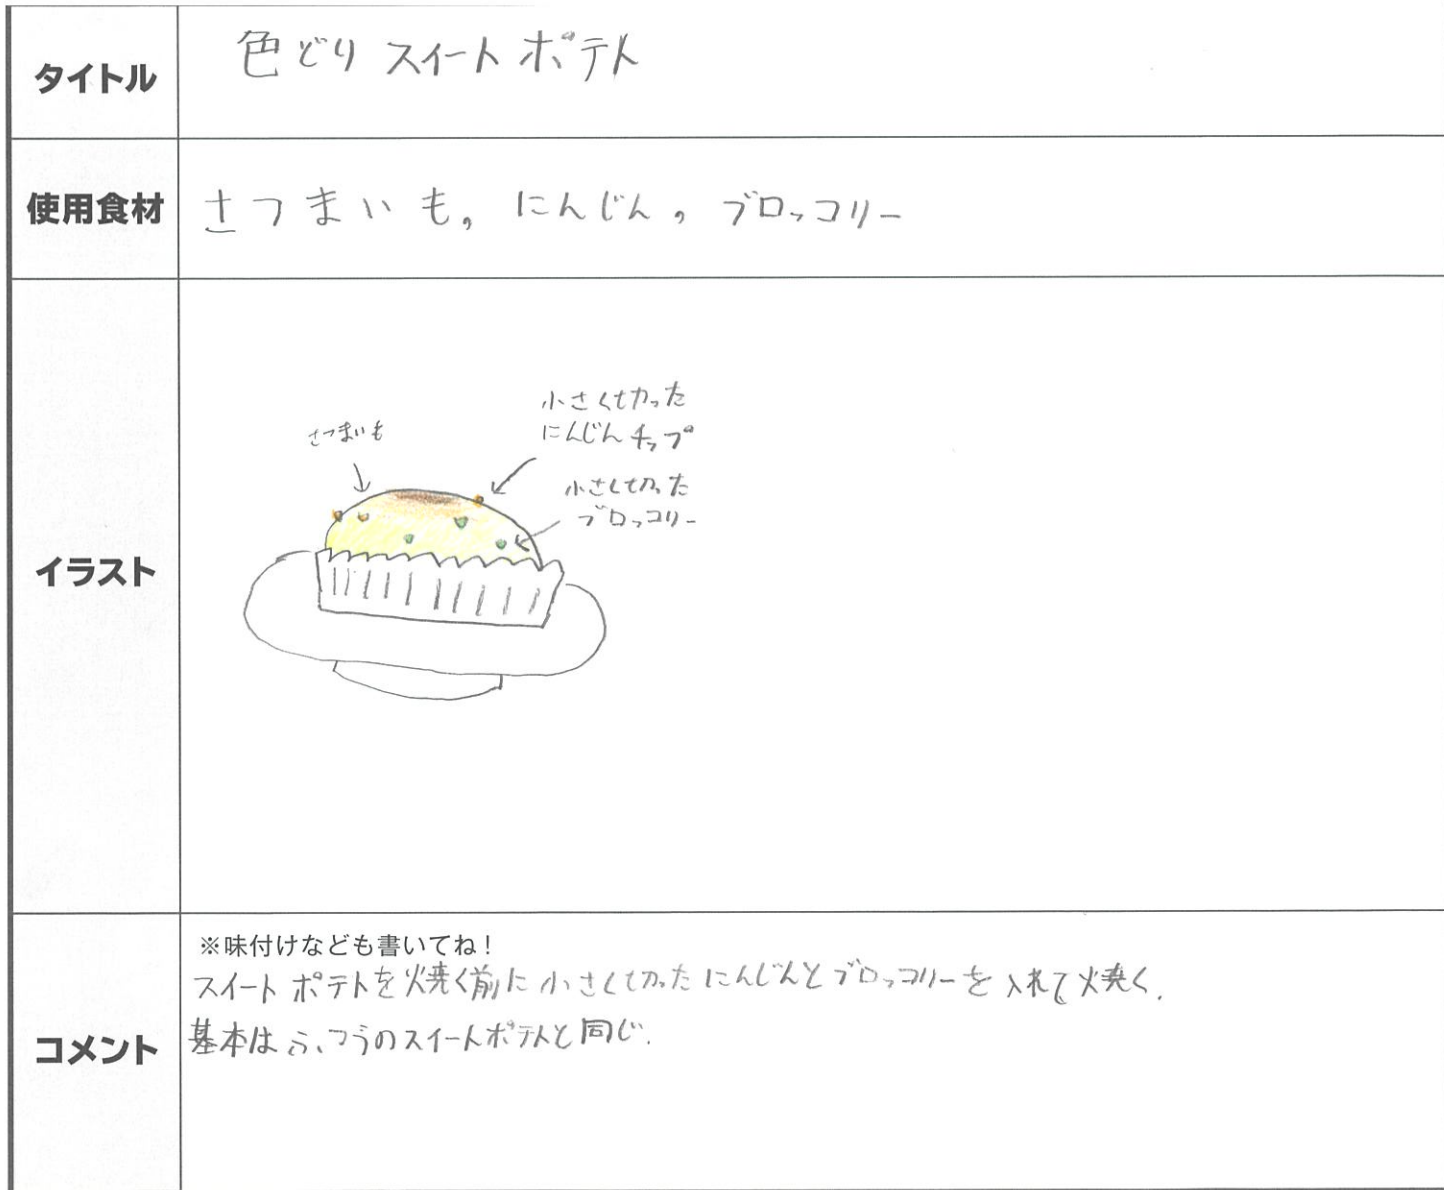 タイトル
色どりスイートポテト
使用食材
さつまいも,にんじん,ブロッコリー
イラスト
さつまいも
小さく切った
にんじんチップ
小さく切った
ブロッコリー
コメント
※味付けなども書いてね!
スイートポテトを焼く前に小さく切ったにんじんとブロッコリーを入れて焼く.
基本はふつうのスイートポテトと同じ.